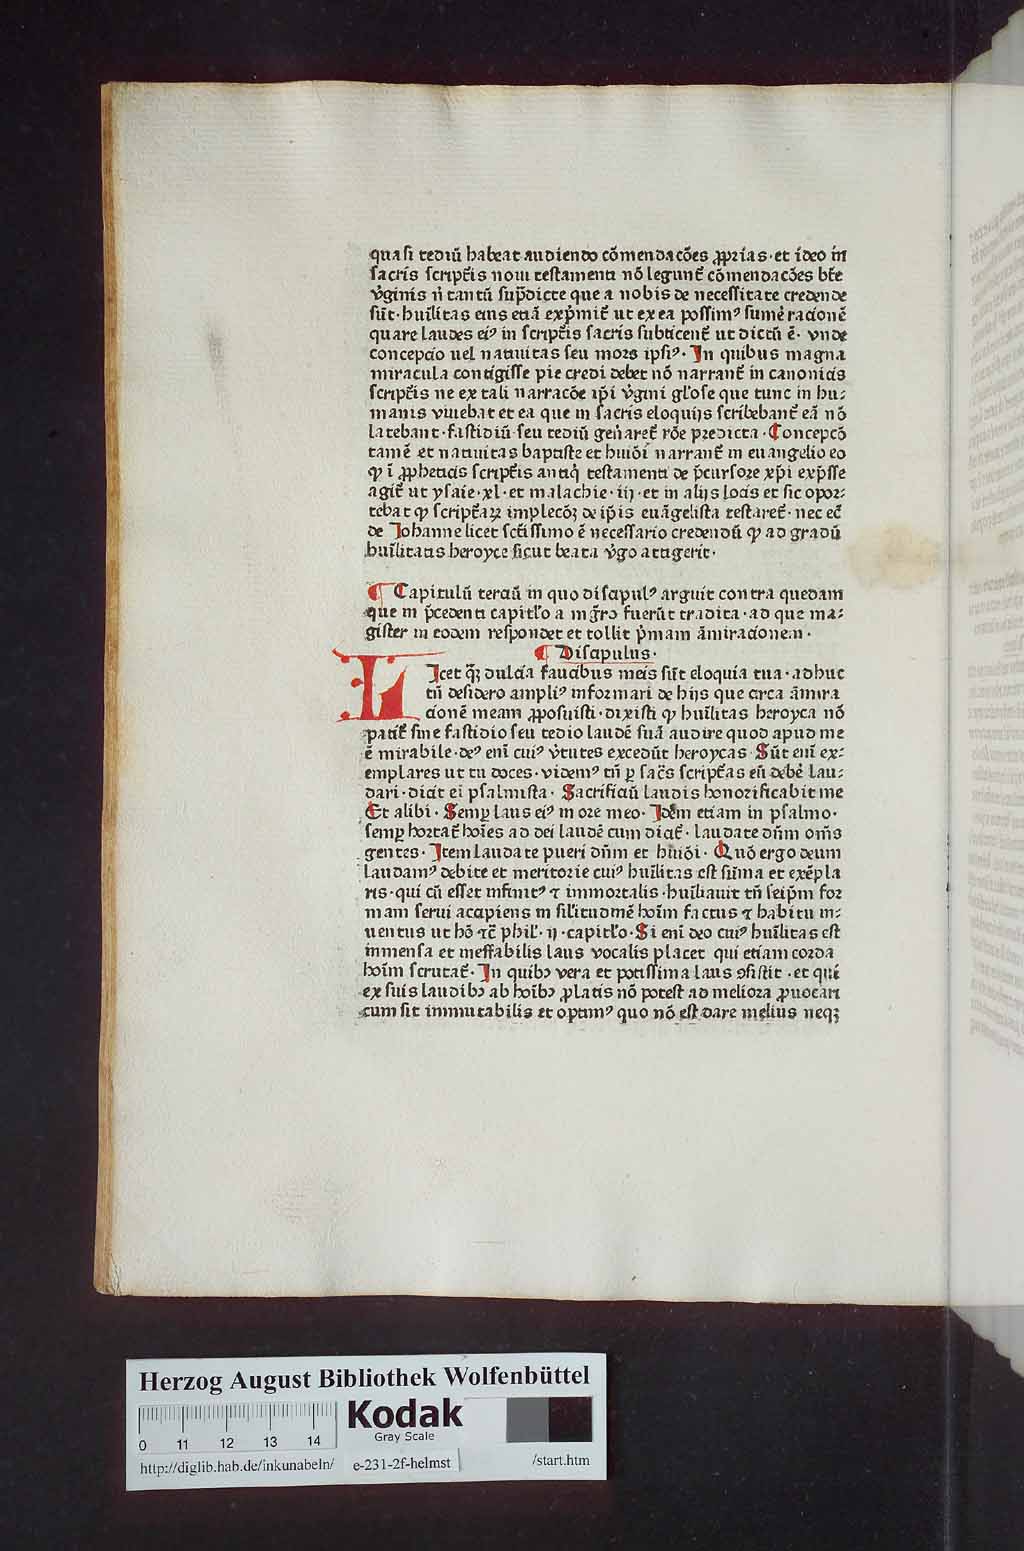 quasi tediū habeat audiendo cōmendacōes ꝓprias · et ideo in
sacris script̄is noui testamenti nō legunt̄ cōmendacōes bt̄e
v̓ginis n̄ tantū sup̄dicte que a nobis de necessitate credende
sūt · huīlitas eius etiā exp̓mit̄ ut ex ea possimꝰ sume᷑ racionē
quare laudes eiꝰ in script̄is sacris subticent̄ ut dictū ē · vnde
concepcio uel natiuitas seu mors ipsiꝰ · In quibus magna
miracula contigisse pie credi debet nō narrant̄ in canonicis
script̄is ne ex tali narracōe ip̄i v̓gini gl̓ose que tunc in hu⸗
manis viuebat et ea que in sacris eloquijs scribebant̄ eā nō
latebant · fastidiū seu tediū gen̓aret̄ rōe predicta · Concepcō
tamē et natiuitas baptiste et huiōi narrant̄ in euangelio eo
ꝙ ī ꝓpheticis script̄is antiq̓ testamenti de p̄cursore xp̄i exp̄sse
agit̄ ut ysaie · xl · et malachie · iij · et in alijs locis et sic opor⸗
tebat ꝙ script̄aꝝ implecōꝫ de ip̄is euāgelista testaret̄ · nec ec̄
de Johanne licet sct̄issimo ē necessario credendū ꝙ ad gradū
huīlitatis heroyce sicut beata v̓go attigerit ·
¶ Capitulū terciū in quo discipulꝰ arguit contra quedam
que in p̄cedenti capitl̓o a mḡro fuerūt tradita · ad que ma⸗
gister in eodem respondet et tollit p̓mam āmiracionem ·
¶ Discipulus ·
LIcet q̄ꝫ dulcia faucibus meis sūt eloquia tua · adhuc
tn̄ desidero ampliꝰ informari de hijs que circa āmira
cionē meam ꝓposuisti · dixisti ꝙ huīlitas heroyca nō
patit̄ sine fastidio seu tedio laudē suā audire quod apud me
ē mirabile · deꝰ enī cuiꝰ v̓tutes excedūt heroycas · Sūt enī ex⸗
emplares ut tu doces · videmꝰ tn̄ ꝑ sac̄s script̄as eū debe᷑ lau⸗
dari · dicit ei psalmista · Sacrificiū laudis honorificabit me
Et alibi · Semꝑ laus eiꝰ in ore meo · Idem etiam in psalmo ·
semꝑ hortat̄ hoīes ad dei laudē cum dicit̄ · laudate dn̄m om̄s
gentes · Item laudate pueri dn̄m et huiōi · Quō ergo deum
laudamꝰ debite et meritorie cuiꝰ huīlitas est sūma et exēpla
ris · qui cū esset infinitꝰ ⁊ immortalis · huīliauit tn̄ seip̄m for
mam serui accipiens in sil̓itudinē hoīm factus ⁊ habitu in⸗
uentus ut hō ⁊c̄ phil̓ · ij · capitl̓o · Si enī deo cuiꝰ huīlitas est
immensa et ineffabilis laus vocalis placet qui etiam corda
hoīm scrutat̄ · In quibꝫ vera et potissima laus ꝯsistit · et qui
ex suis laudibꝫ ab hoībꝫ ꝓlatis nō potest ad meliora ꝓuocari
cum sit immutabilis et optimꝰ quo nō est dare melius neqꝫ
Herzog August Bibliothek Wolfenbüttel
Kodak
Gray Scale
0 11 12 13 14
http://diglib.hab.de/inkunabeln/ e-231-2f-helmst /start.htm